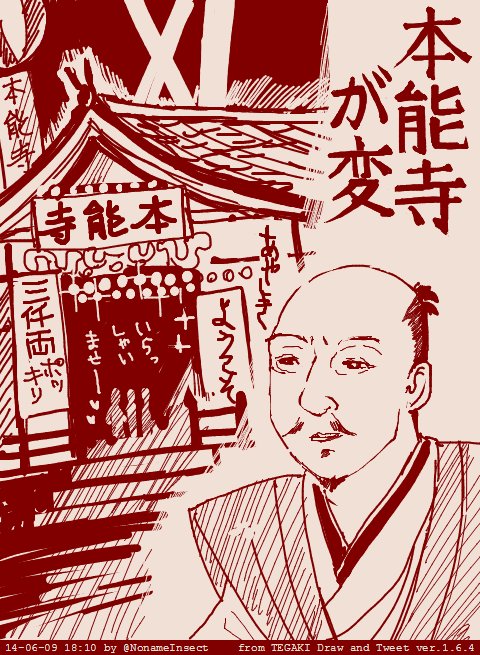 本能寺
が変
本能寺
本能寺
あやしき〜
三仟両ポッキリ
いらっ
しゃい
ませー♡
ようこそ
14-06-09 18:10 by @NonameInsect from TEGAKI Draw and Tweet ver.1.6.4